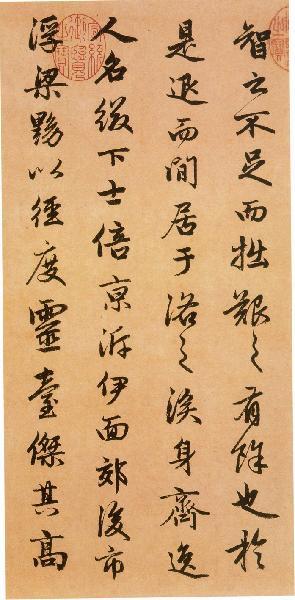 智之不足而拙艱之有餘也於
是退而間居于洛之涘身齊逸
人名綴下士倍京泝伊面郊後市
浮梁黝以徑度靈臺傑其高